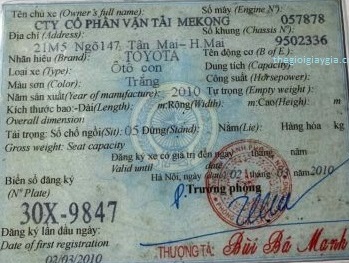 Tên chủ xe (Owner's full name): Số máy (Engine N°):
CTY CỔ PHẦN VẬN TẢI MEKONG 057878
Địa chỉ (Address): Số khung (Chassis N°):
21M5 Ngõ147 Tân Mai-H.Mai 9502336
Nhãn hiệu (Brand): TOYOTA Động cơ (B of E.):
Loại xe (Type): Ôtô con Dung tích (Capacity):
Màu sơn (Color): Trắng Công suất (Horsepower):
Năm sản xuất (Year of manufacture): 2010 Tự trọng (Empty weight):
Kích thước bao:-Dài(Length) m:Rộng(Width) m:Cao(Height) m
Overall dimension
Tải trọng: Số chỗ ngồi(Sit) 05 Đứng(Stand) Năm(Lie): Hàng hóa kg
Gross weight: Seat capacity
Đăng ký xe có giá trị đến ngày tháng năm
Valid until
Biển số đăng ký Hà Nội, ngày 02 tháng 03 năm 2010
(N° Plate) Trưởng phòng
30X-9847
Đăng ký lần đầu ngày:
Date of first registration
02/03/2010 THƯỢNG TÁ: Bùi Bá Mạnh